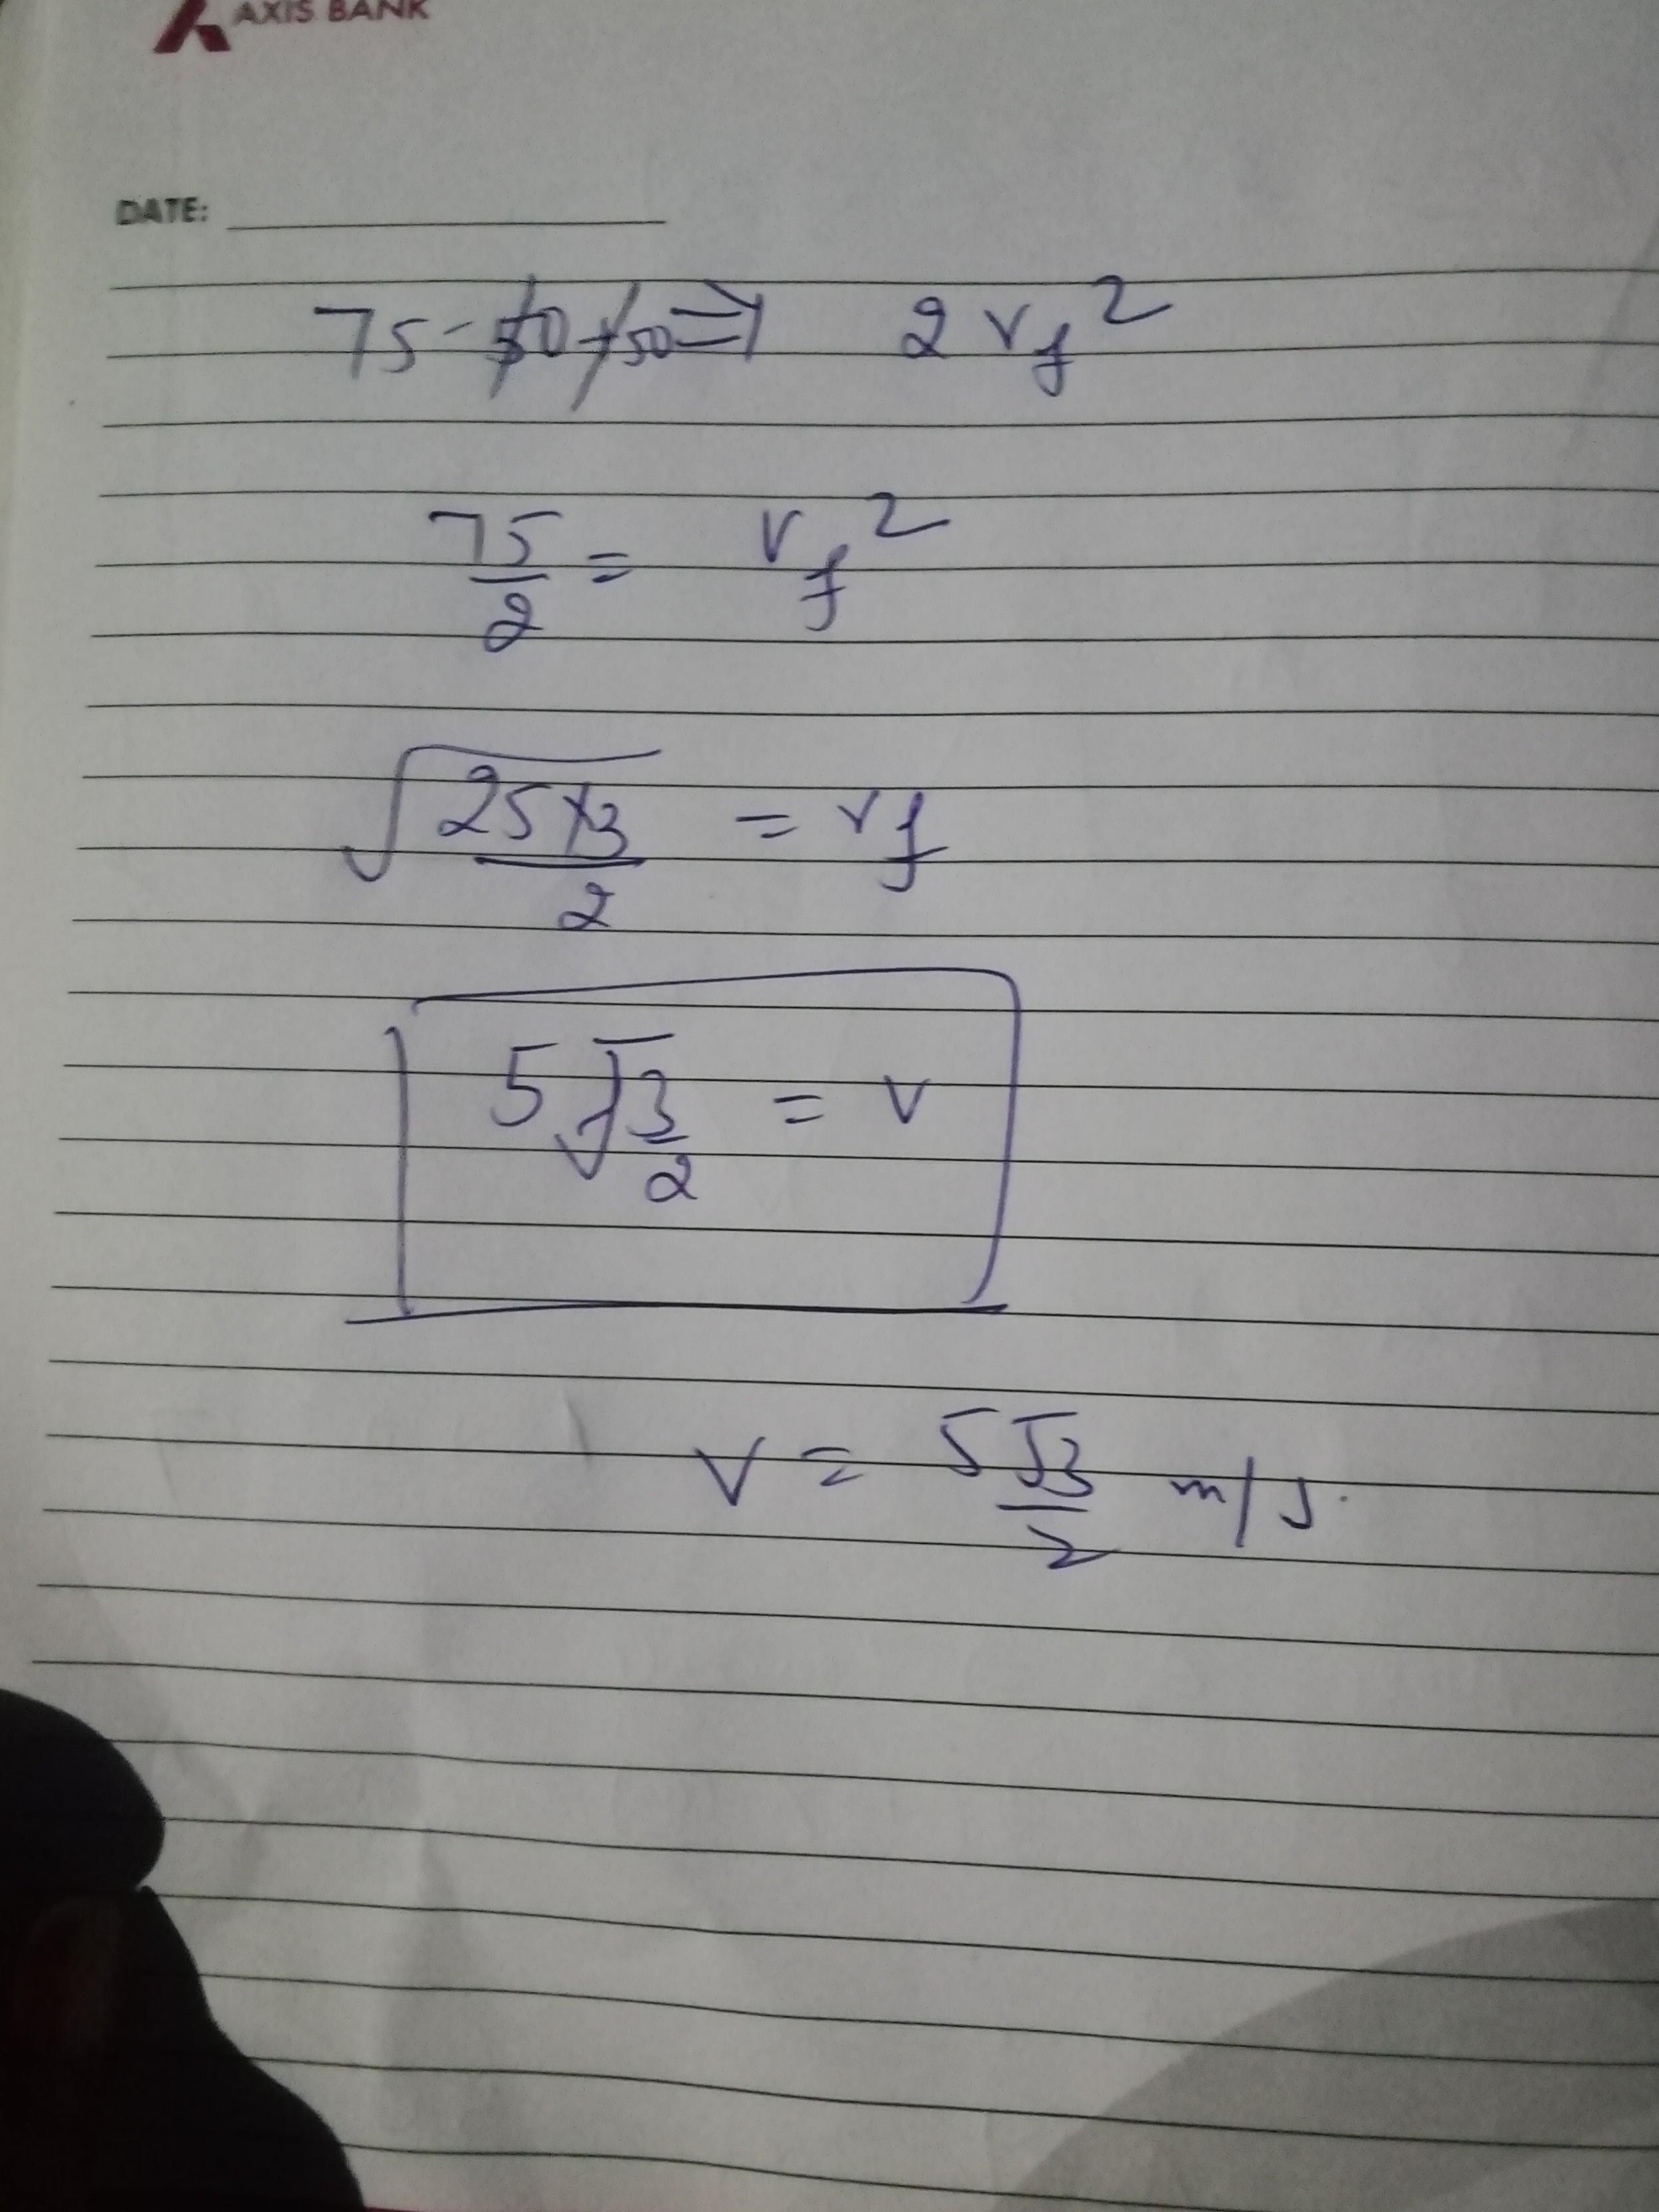 AXIS BANK
DATE:
75 - 50 + 50 => 2 Vf²
75/2 = Vf²
√(25×3/2) = Vf
5√(3/2) = V
V = 5√3/2 m/s.